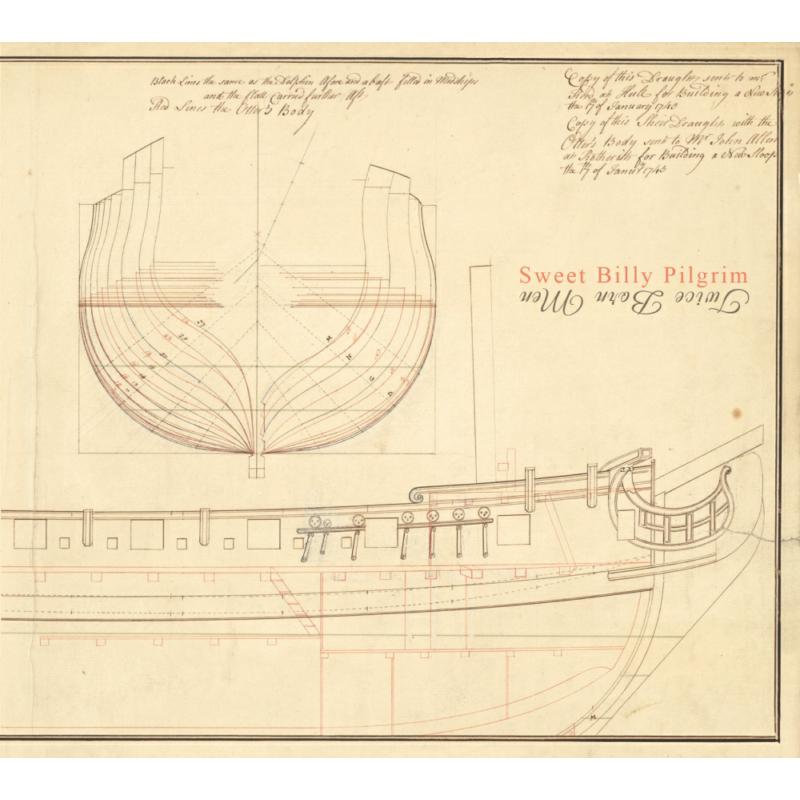 Black Lines the same as the Dolphin Afore and abaft filled in Midships
and the Flatt Carried further Aft
Red Lines the Otter's Body
Copy of this Draught sent to Mr
at Hull for Building a New
the 17 of January 1743
Copy of this Sheer Draught with the
Otters Body sent to Mr John Allen
at Rotherith for Building a New Sloop
the 17 of Janry 1743
Sweet Billy Pilgrim
Twice Born Men